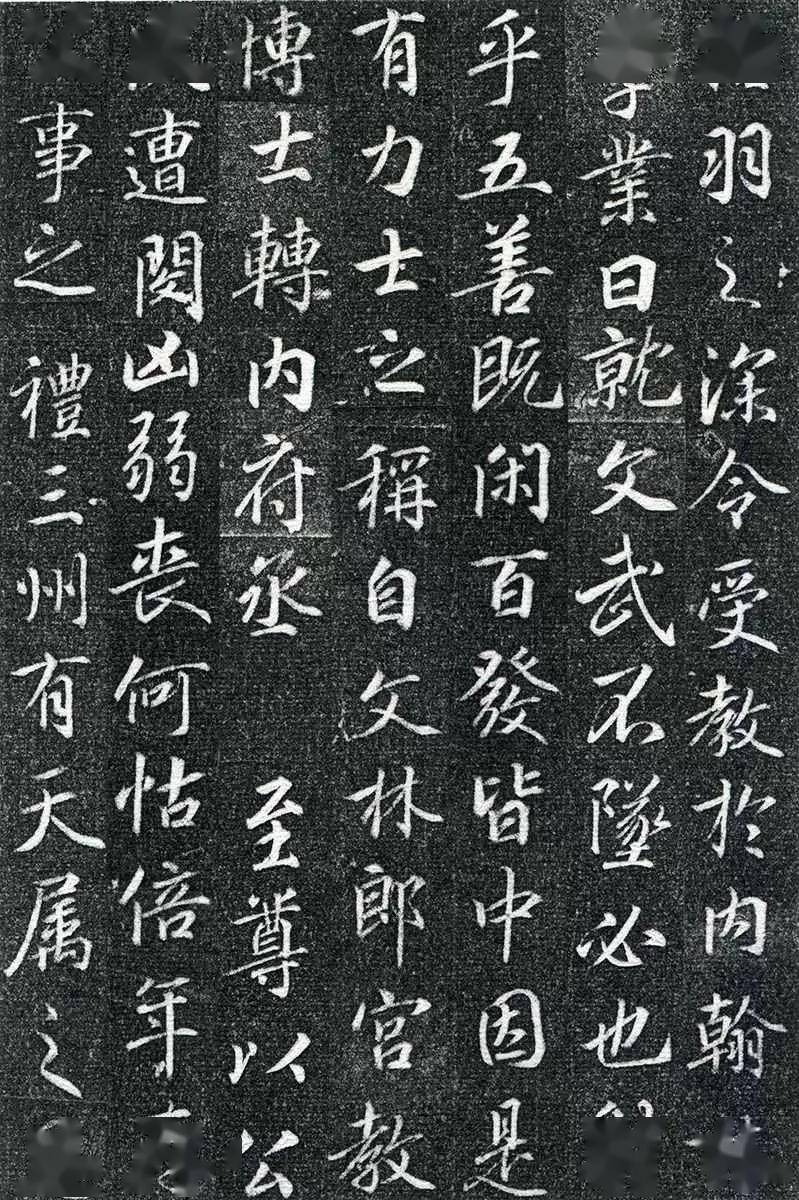 羽之深令受教於内翰
學業日就文武不墜必也
乎五善既闲百發皆中因是
有力士之稱自文林郎宫教
博士轉内府丞 至尊以公
遭閔凶弱喪何怙倍年
事之禮三州有天属之